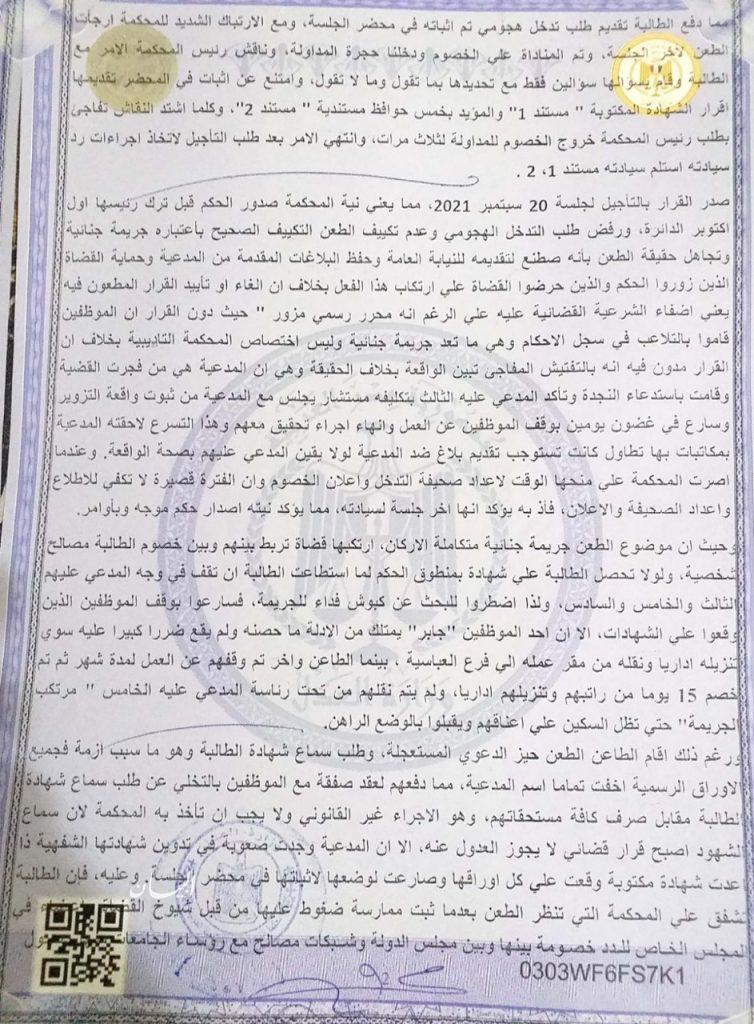 مما دفع الطالبة تقديم طلب تدخل هجومي تم اثباته في محضر الجلسة، ومع الارتباك الشديد للمحكمة ارجأت
الطعن لآخر الجلسة، وتم المناداة علي الخصوم ودخلنا حجرة المداولة، وناقش رئيس المحكمة الامر مع
الطالبة وقام بسؤالها سؤالين فقط مع تحديدها بما تقول وما لا تقول، وامتنع عن اثبات في المحضر تقديمها
اقرار الشهادة المكتوبة " مستند 1" والمؤيد بخمس حوافظ مستندية " مستند 2"، وكلما اشتد النقاش تفاجئ
بطلب رئيس المحكمة خروج الخصوم للمداولة لثلاث مرات، وانتهي الامر بعد طلب التأجيل لاتخاذ اجراءات رد
سيادته استلم سيادته مستند 1، 2 .
صدر القرار بالتأجيل لجلسة 20 سبتمبر 2021، مما يعني نية المحكمة صدور الحكم قبل ترك رئيسها اول
اكتوبر الدائرة، ورفض طلب التدخل الهجومي وعدم تكييف الطعن التكييف الصحيح بأعتباره جريمة جنائية
وتجاهل حقيقة الطعن بأنه صطنع لتقديمه للنيابة العامة وحفظ البلاغات المقدمة من المدعية وحماية القضاة
الذين زوروا الحكم والذين حرضوا القضاة علي ارتكاب هذا الفعل بخلاف ان الغاء او تأييد القرار المطعون فيه
يعني اضفاء الشرعية القضائية عليه علي الرغم انه محرر رسمي مزور " حيث دون القرار ان الموظفين
قاموا بالتلاعب في سجل الاحكام وهي ما تعد جريمة جنائية وليس اختصاص المحكمة التاديبية بخلاف ان
القرار مدون فيه انه بالتفتيش المفاجئ تبين الواقعة بخلاف الحقيقة وهي ان المدعية هي من فجرت القضية
وقامت باستدعاء النجدة وتأكد المدعي عليه الثالث بتكليفه مستشار يجلس مع المدعية من ثبوت واقعة التزوير
وسارع في غضون يومين بوقف الموظفين عن العمل وانهاء اجراء تحقيق معهم وهذا التسرع لاحقته المدعية
بمكاتبات بها تطاول كانت تستوجب تقديم بلاغ ضد المدعية لولا يقين المدعي عليهم بصحة الواقعة. وعندما
اصرت المحكمة علي منحها الوقت لاعداد صحيفة التدخل واعلان الخصوم وان الفترة قصيرة لا تكفي للاطلاع
واعداد الصحيفة والاعلان، فأذ به يؤكد انها اخر جلسة لسيادته، مما يؤكد نيته اصدار حكم موجه وبأوامر.
وحيث ان موضوع الطعن جريمة جنائية متكاملة الاركان، ارتكبها قضاة تربط بينهم وبين خصوم الطالبة مصالح
شخصية، ولولا تحصل الطالبة علي شهادة بمنطوق الحكم لما استطاعت الطالبة ان تقف في وجه المدعي عليهم
الثالث والخامس والسادس، ولذا اضطروا للبحث عن كبوش فداء للجريمة، فسارعوا بوقف الموظفين الذين
وقعوا علي الشهادات، الا ان احد الموظفين "جابر" يمتلك من الادلة ما حصنه ولم يقع ضررا كبيرا عليه سوي
تنزيله اداريا ونقله من مقر عمله الي فرع العباسية ، بينما الطاعن واخر تم وقفهم عن العمل لمدة شهر ثم تم
خصم 15 يوما من راتبهم وتنزيلهم اداريا، ولم يتم نقلهم من تحت رئاسة المدعي عليه الخامس " مرتكب
الجريمة" حتي تظل السكين علي اعناقهم ويقبلوا بالوضع الراهن.
ورغم ذلك اقام الطاعن الطعن حيز الدعوي المستعجلة، وطلب سماع شهادة الطالبة وهو ما سبب ازمة فجميع
الاوراق الرسمية اخفت تماما اسم المدعية، مما دفعهم لعقد صفقة مع الموظفين بالتخلي عن طلب سماع شهادة
لطالبة مقابل صرف كافة مستحقاتهم، وهو الاجراء غير القانوني ولا يجب ان تأخذ به المحكمة لان سماع
لشهود اصبح قرار قضائي لا يجوز العدول عنه، الا ان المدعية وجدت صعوبة في تدوين شهادتها الشفهية ذا
عدت شهادة مكتوبة وقعت علي كل اوراقها وصارعت لوضعها لاثباتها في محضر الجلسة. وعليه، فإن الطالبة
شفق علي المحكمة التي تنظر الطعن بعدما ثبت ممارسة ضغوط عليها من قبل شيوخ في
لمجلس الخاص للدد خصومة بينها وبين مجلس الدولة وشبكات مصالح مع رؤساء الجامعات
0303WF6FS7K1